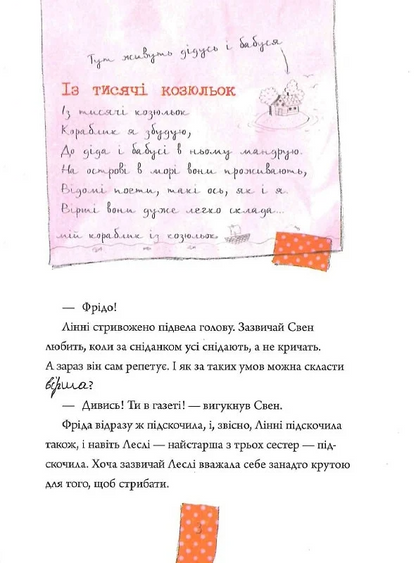 Тут живуть дідусь і бабуся
Із тисячі козюльок
Із тисячі козюльок
Кораблик я збудую,
До діда і бабусі в ньому мандрую.
На острові в морі вони проживають,
Відомі поети, такі ось, як і я.
Вірші вони дуже легко склада...
мій кораблик із козюльок
— Фрідо!
Лінні стривожено підвела голову. Зазвичай Свен
любить, коли за сніданком усі снідають, а не кричать.
А зараз він сам репетує. І як за таких умов можна скласти
вірша?
— Дивись! Ти в газеті! — вигукнув Свен.
Фріда відразу ж підскочила, і, звісно, Лінні підскочила
також, і навіть Леслі — найстарша з трьох сестер — під-
скочила. Хоча зазвичай Леслі вважала себе занадто крутою
для того, щоб стрибати.